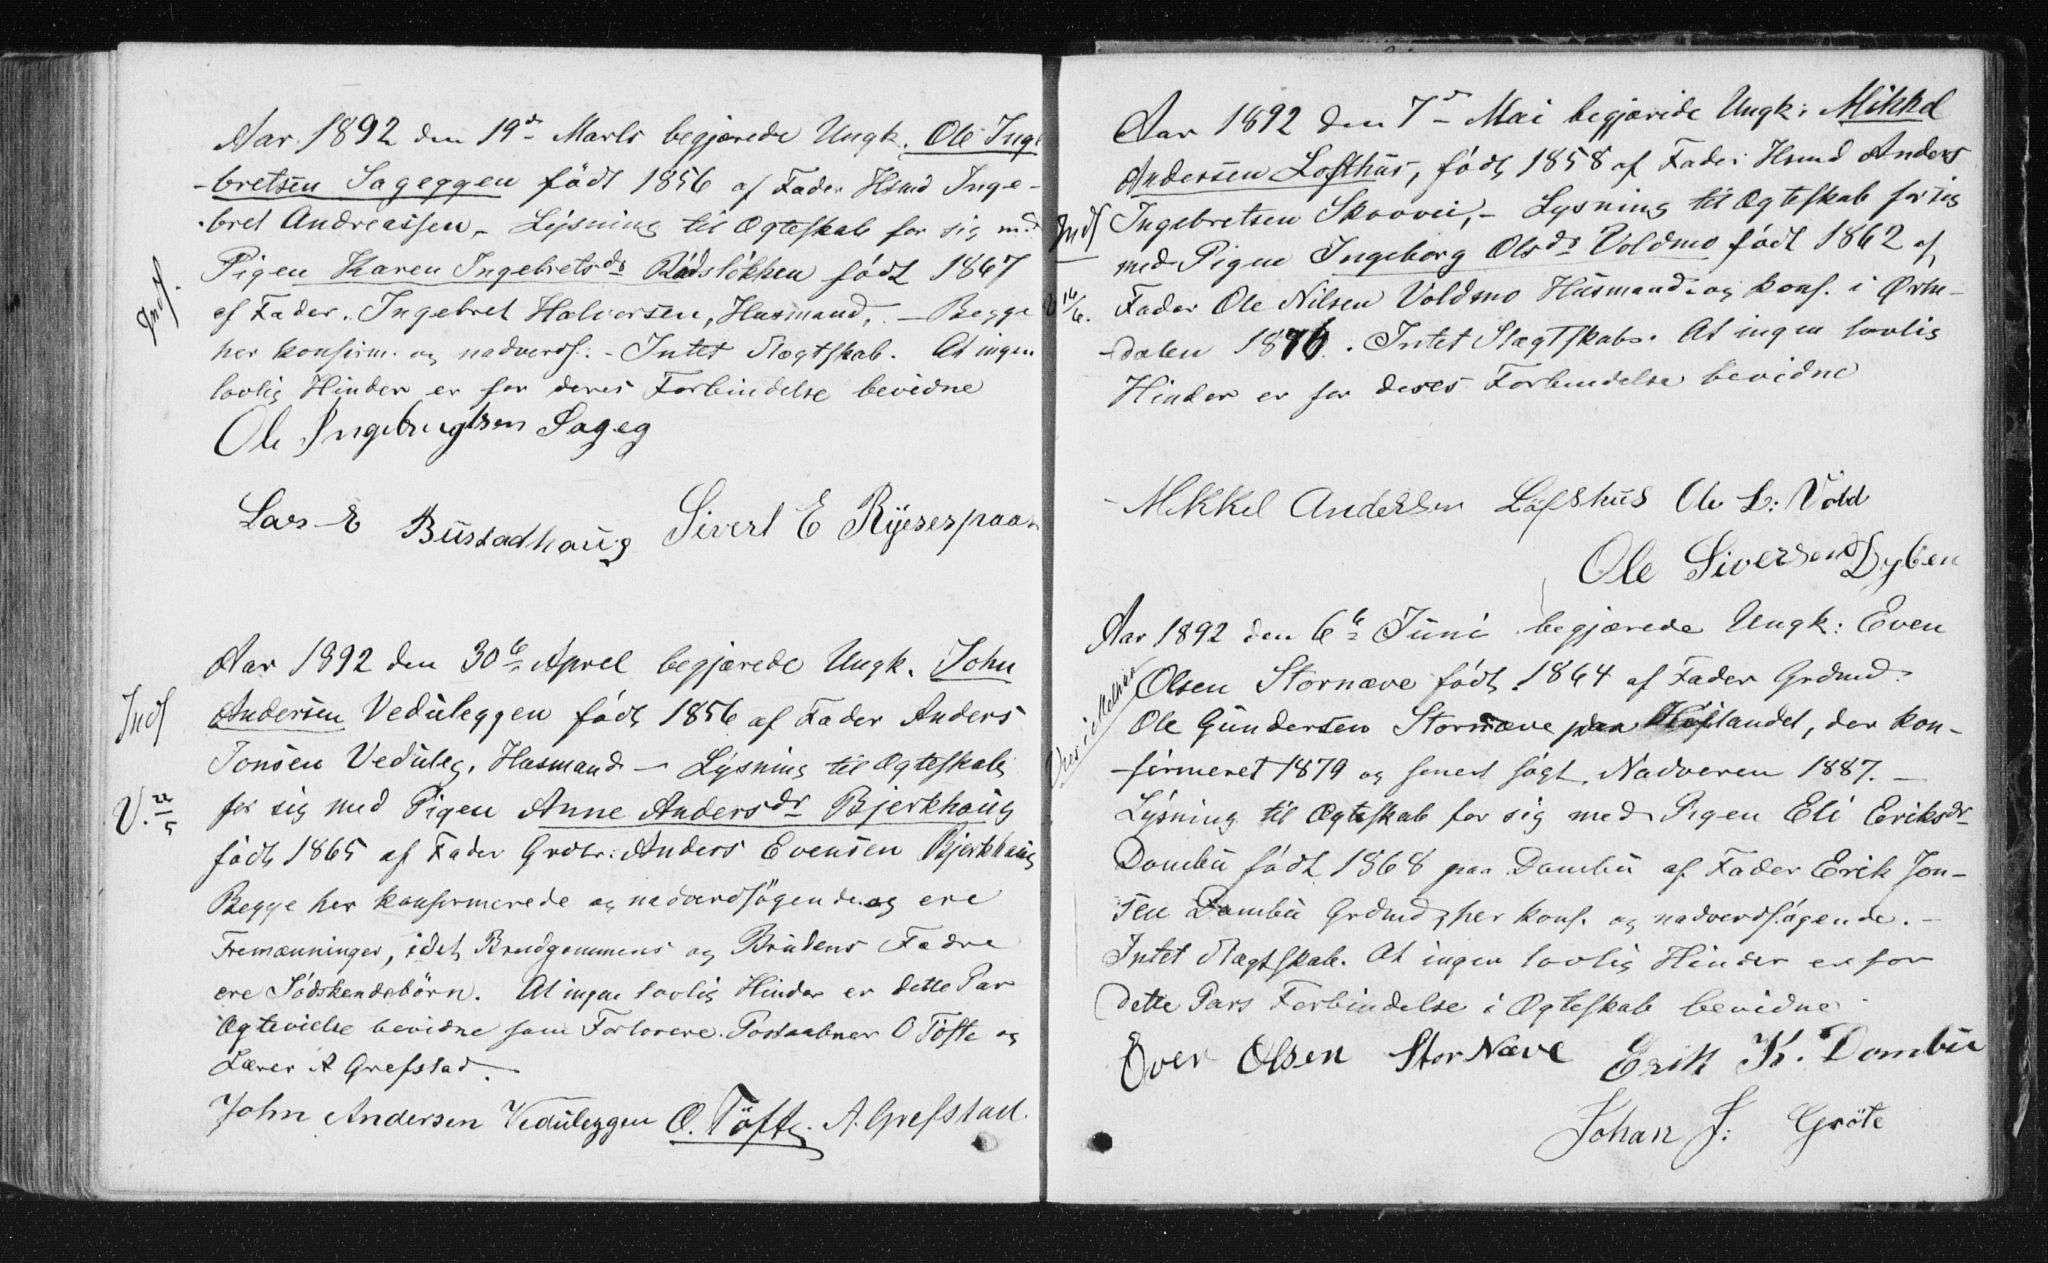 Aar 1892 den 19de Marts begjærede Ungk. Ole Inge
-bretsen Sageggen födt 1856 af Fader Hsmd Inge-
-bret Andreassen, - Lysning til Ægteskab for sig med
Pigen Karen Ingebretsdr Rödslökken födt 1867
af Fader. Ingebret Halvorsen, Husmand, - Begge
Indf.
her konfirm. og nadverds:- Intet Slægtskab. At ingen
lovlig Hinder er for deres Forbindelse bevidne
Ole Ingebrigtsen Sageg
Lars E Bustadhaug Sivert E
Aar 1892 den 30te Aprel begjærede Ungk. John
Indf
Andersen Veduleggen födt 1856 af Fader Anders
Jonsen Veduleg, Husmand - Lysning til Ægteskab
V. 22/5
for sig med Pigen Anne Andersdr Bjerkhaug
födt 1865 af Fader Grdbr: Anders Evensen Bjerkhaug
Begge her konfirmerede og nadverdsögende og ere
Fremænninger, idet Brudgommens og Brudens Fædre
ere Södskendebörn. At ingen lovlig Hinder er dette Par
Ægtevielse bevidne som Forlovere Postaabner O Töfte og
Lærer A Grefstad.
John Andersen Veduleggen O. Töfte. A. Grefstad.
Aar 1892 den 7de Mai begjærede Ungk: Mikkel
Andersen Lofthus, födt 1858 af Fader Hsmd Anders
Indf
Ingebretsen Skoovei,- Lysning til Ægteskab for sig
med Pigen Ingeborg Olsdr Voldmo födt 1862 af
V 16/6.
Fader Ole Nilsen Voldmo Husmand og konf. i Ørke-
-dalen 1876. Intet Slægtskab. At ingen lovlig
Hinder er for deres Forbindelse bevidne
Mikkel Andersen Lofshus Ole L: Vold
Ole Siversen Dyben
Aar 1892 den 6te Juni begjærede Ungk: Even
Olsen Stornæve födt 1864 af Fader Grdmd.
Viet i Meldal
Ole Gundersen Stornæve paa Høilandet, der kon-
-firmeret 1879 og senest sögt Nadveren 1887. -
Lysning til Ægteskab for sig med Pigen Eli Eriksdr
Dombu födt 1868 paa Dombu af Fader Erik Jon-
sen Dombu Grdmd, her konf. og nadverdsögende. -
Intet Slægtskab. At ingen lovlig Hinder er for
dette Pars Forbindelse i Ægteskab bevidne
Even Olsen StorNæve Erik K. Dombu
Johan J: Gröte